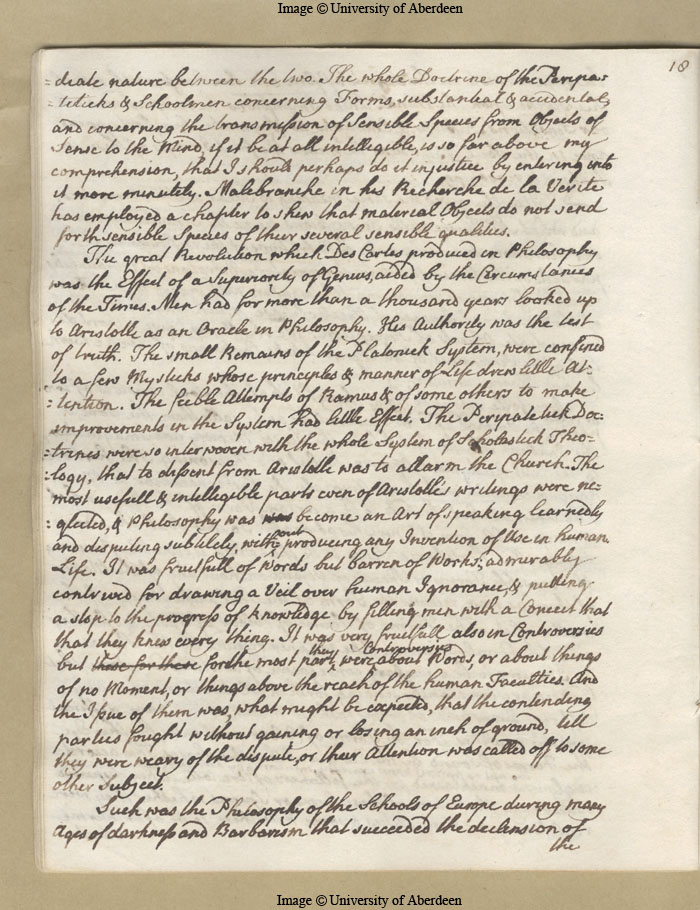 Image © University of Aberdeen
18
=diate nature between the two. The whole Doctrine of the Peripa=
=teticks & Schoolmen concerning Forms, substantial & accidental,
and concerning the transmission of Sensible Species from Objects of
Sense to the Mind, if it be at all intellegible, is so far above my
comprehension, that I should perhaps do it injustice by entering into
it more minutely. Malebranche in his Recherche de la Verite
has employed a chapter to shew that material Objects do not send
forth sensible Species of their several sensible qualities.
The great Revolution which Des Cartes produced in Philosophy
was the Effect of a Superiority of Genius, aided by the Circumstances
of the Times. Men had for more than a thousand years looked up
to Aristotle as an Oracle in Philosophy. His Authority was the test
of truth. The small Remains of the Platonick System, were confined
to a few Mysticks whose principles & manner of Life drew little At=
=tention. The feeble Attempts of Ramus & of some others to make
improvements in the System had little Effect. The Peripatetick Doc=
=trines were so interwoven with the whole System of Scholastick Theo=
=logy, that to dissent from Aristotle was to allarm the Church. The
most usefull & intelligible parts even of Aristotle's writings were ne=
=glected, & Philosophy was was become an Art of speaking learnedly
and disputing subtilely, without producing any Invention of Use in human
Life. It was fruitfull of Words but barren of Works; admirably
contrived for drawing a Veil over human Ignorance, & putting
a stop to the progress of knowledge by filling men with a Conceit that
that they knew every thing. It was very fruitfull also in Controversies
but these for these for the most part they were Controversies about Words, or about things
of no Moment, or things above the reach of the human Faculties. And
the Issue of them was, what might be expected, that the contending
parties fought without gaining or losing an inch of ground, till
they were weary of the dispute, or their Attention was called off to some
other Subject.
Such was the Philosophy of the Schools of Europe during many
Ages of darkness and Barbarism that succeeded the declension of
the
Image © University of Aberdeen